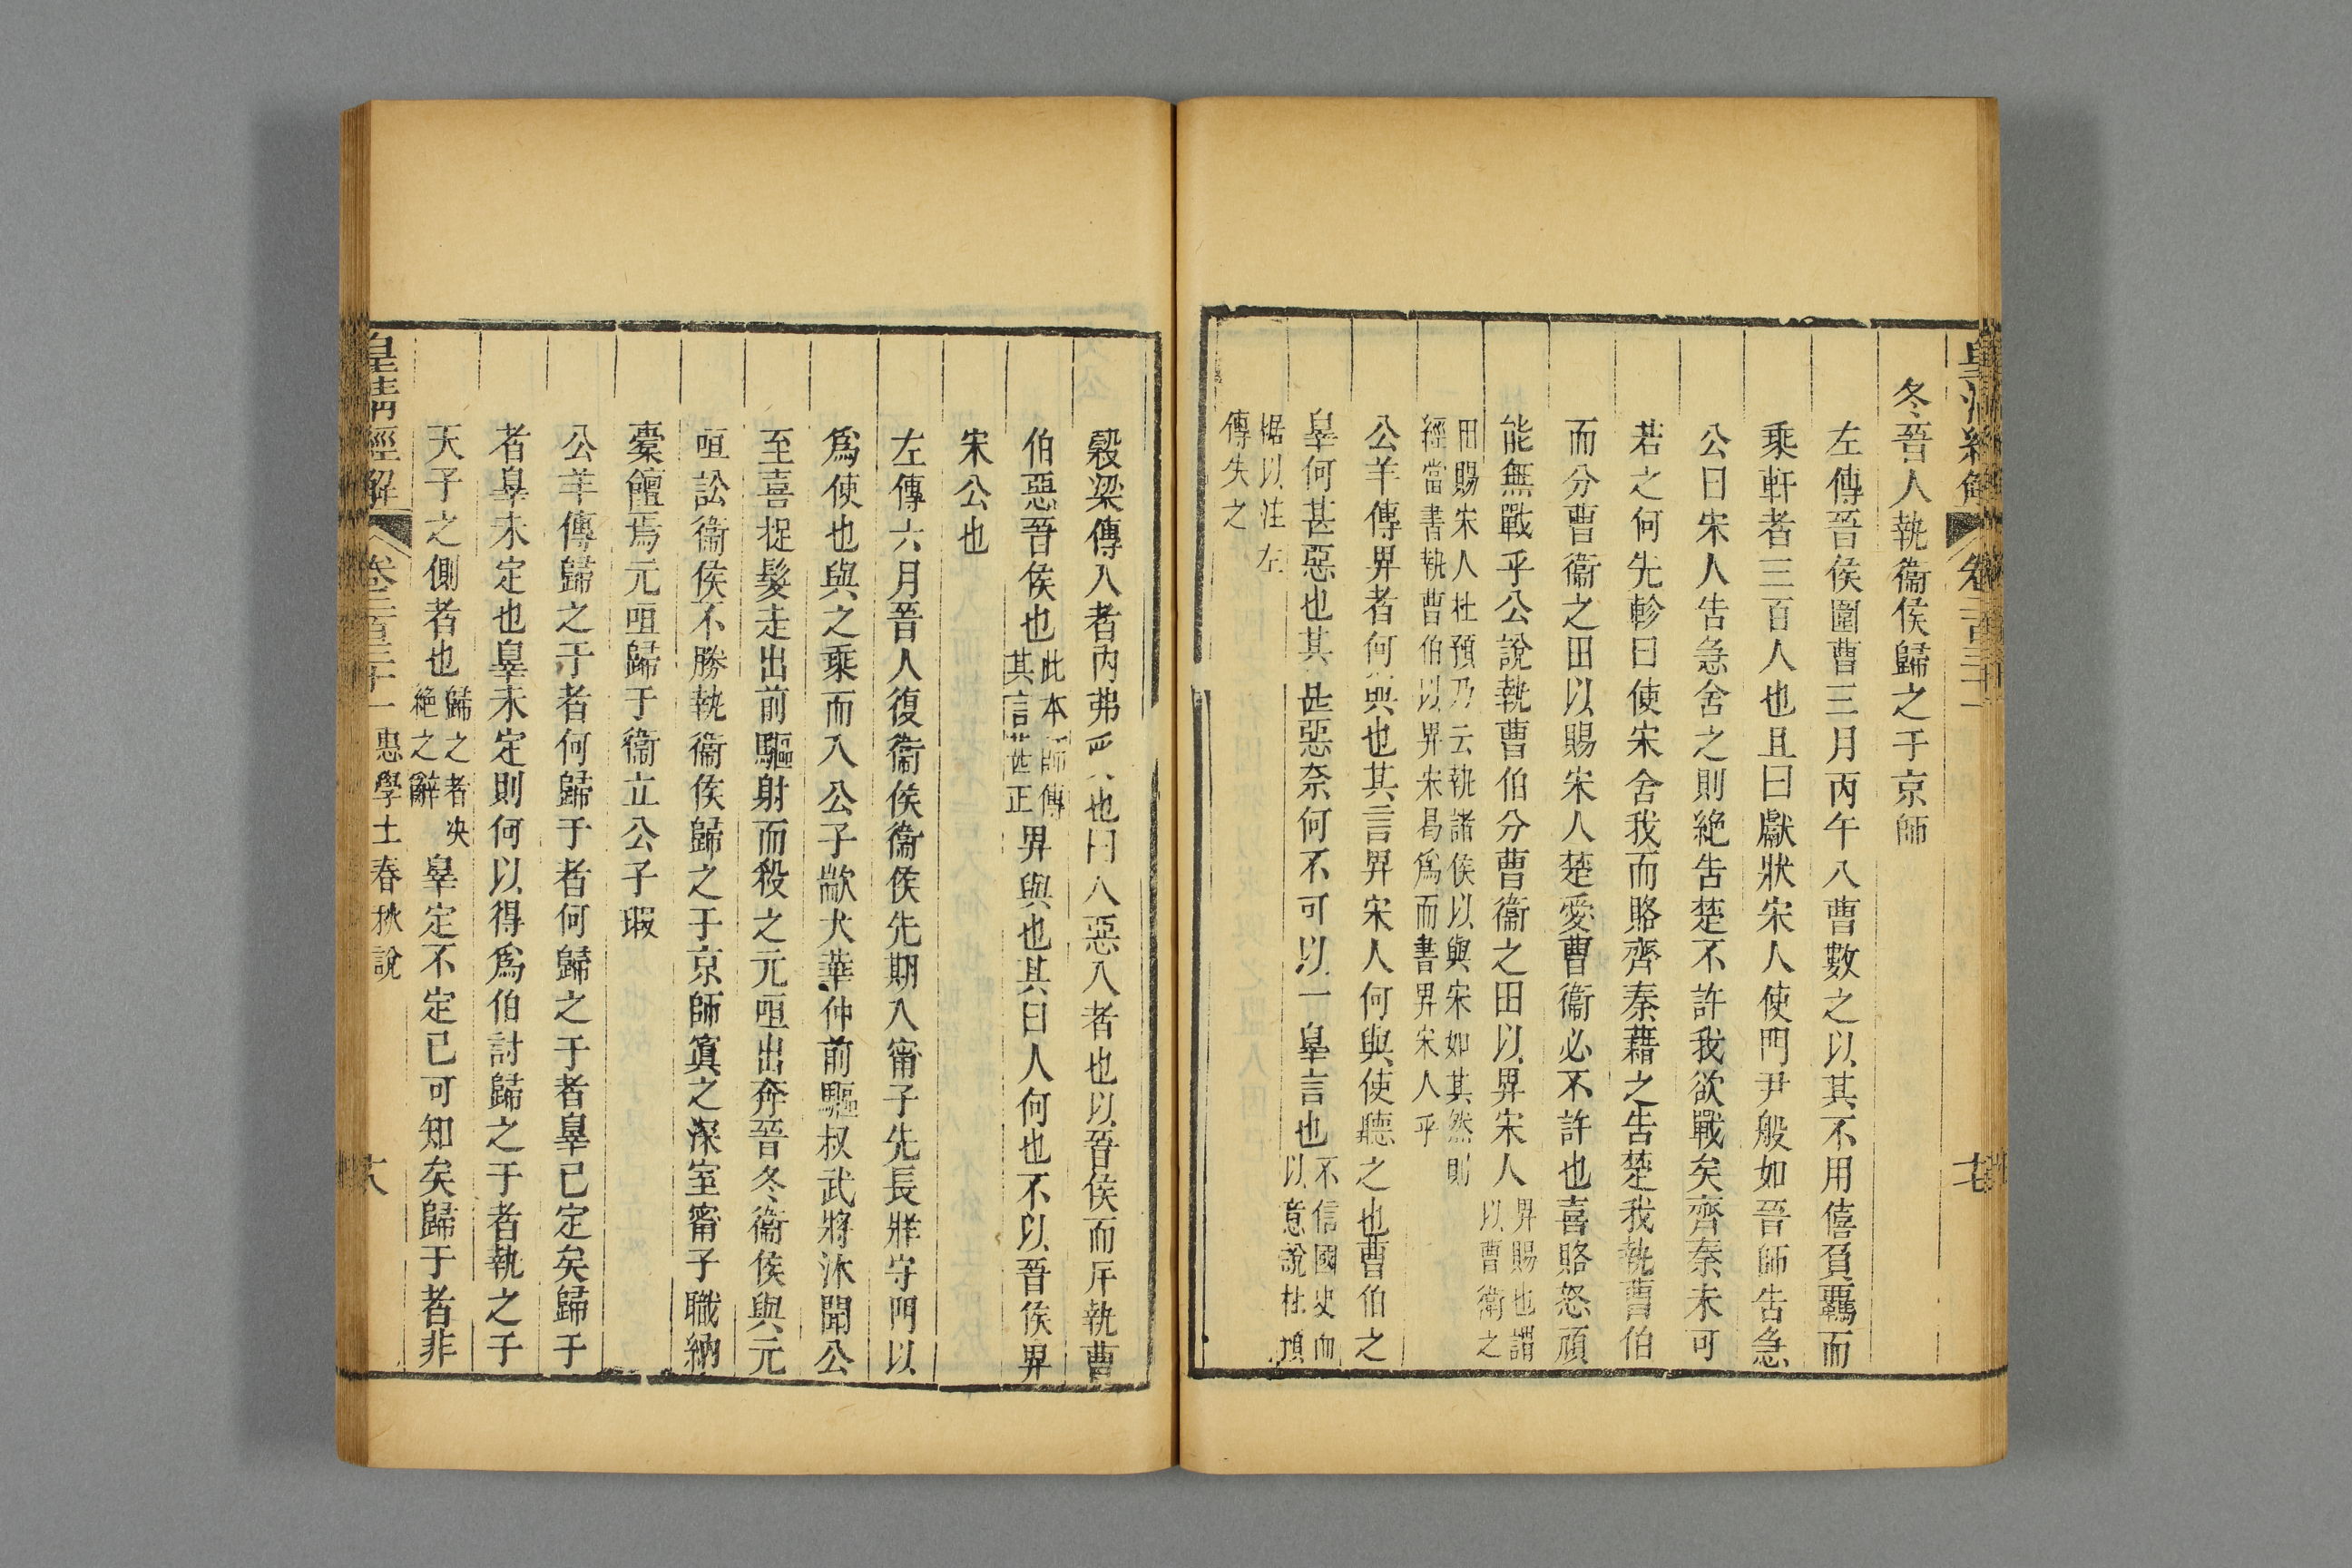 冬晉人執衞侯歸之于京師
左傳晉侯圍曹三月丙午入曹數之以其不用僖負羈而
乘軒者三百人也且曰獻狀宋人使門尹般如晉師告急
公曰宋人告急舍之則絕告楚不許我欲戰矣齊秦未可
若之何先軫曰使宋舍我而賂齊秦藉之告楚我執曹伯
而分曹衞之田以賜宋人楚愛曹衞必不許也喜賂怒頑
能無戰乎公說執曹伯分曹衞之田以畀宋人畀賜也謂以曹衛之
田賜宋人杜預乃云執諸侯以與宋如其然則
經當書執曹伯以畀宋曷爲而書畀宋人乎
公羊傳畀者何與也其言畀宋人何與使聽之也曹伯之
辠何甚惡也其甚惡奈何不可以一辠言也不信國史而以意說杜預
据以注左
傳失之
穀梁傳入者內弗也曰入惡入者也以晉侯而斥執曹
伯惡晉侯也此本師傳其言甚正畀與也其曰人何也不以晉侯畀
宋公也
左傳六月晉人復衞侯衞侯先期入甯子先長牂守門以
爲使也與之乘而入公子歂犬華仲前驅叔武將沐聞公
至喜捉髮走出前驅射而殺之元咺出奔晉冬衞侯與元
咺訟衞侯不勝執衞侯歸之于京師寘之深室甯子職納
橐饘焉元咺歸于衞立公子瑕
公羊傳歸之于者何歸于者何歸之于者辠已定矣歸于
者辠未定也辠未定則何以得爲伯討歸之于者執之于
天子之側者也歸之者决絕之辭辠定不定已可知矣歸于者非
皇清經解 卷二百三十一 惠學士春秋說